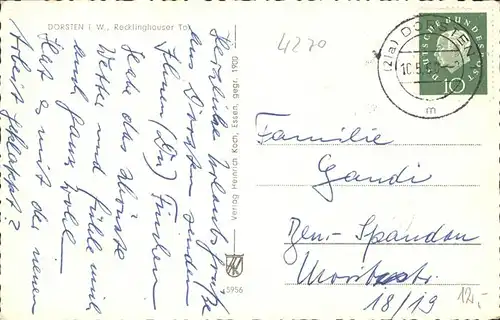 DORSTEN i. W., Recklinghouser Tor
4270
Herzliche Urlaubsgrüße
aus Dorsten senden
Ihnen (Dir) Fürchen
habe das schönste
Wetter und fühle mich
auch ganz wohl.
Hat es mit der neuen
Arbeit geklappt?
Verlag Heinrich Koch, Essen, gegr. 1900
5956
(21a) DORSTEN
10.5.
m
DEUTSCHE BUNDESPOST
10
Familie
Gandi
Bln.- Spandau
str.
18/19
12,-